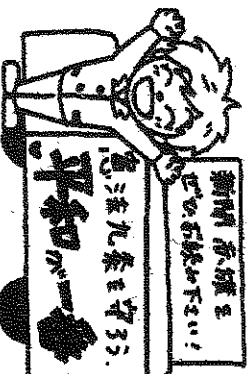 新聞赤旗を
ぜひお読み下さい!
憲法九条を守ろう.
平和が